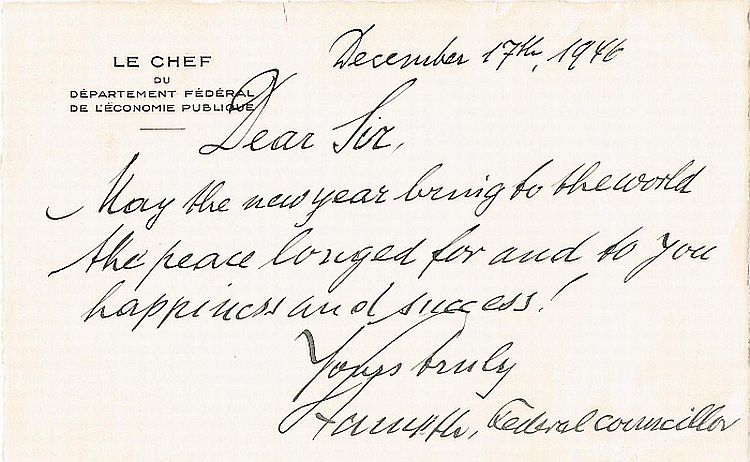 LE CHEF
DU
DÉPARTEMENT FÉDÉRAL
DE L'ÉCONOMIE PUBLIQUE
December 17th, 1946
Dear Sir,
May the new year bring to the world
the peace longed for and to you
happiness and success!
Yours truly
Federal councillor